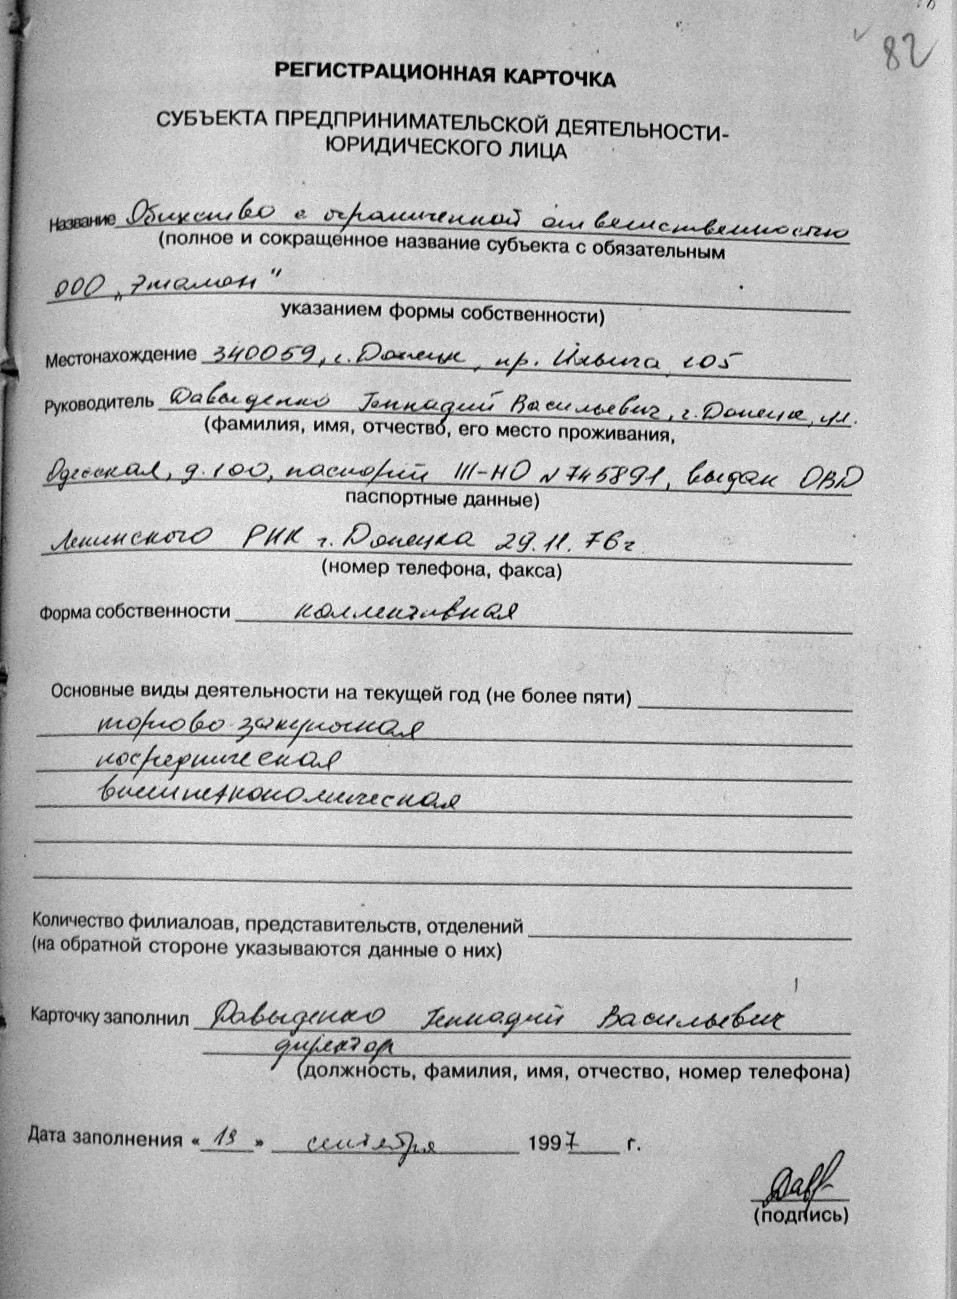 82
РЕГИСТРАЦИОННАЯ КАРТОЧКА
СУБЪЕКТА ПРЕДПРИНИМАТЕЛЬСКОЙ ДЕЯТЕЛЬНОСТИ-
ЮРИДИЧЕСКОГО ЛИЦА
Название Общество с ограниченной ответственностью
(полное и сокращенное название субъекта с обязательным
ООО „Эталон"
указанием формы собственности)
Местонахождение 340059, г. Донецк, пр. Ильича 105
Руководитель Давыденко Геннадий Васильевич, г. Донецк, ул.
(фамилия, имя, отчество, его место проживания,
Одесская, д. 100, паспорт III-НО № 745891, выдан ОВД
паспортные данные)
Ленинского РИК г. Донецка 29.11.76г
(номер телефона, факса)
Форма собственности коллективная
Основные виды деятельности на текущей год (не более пяти)
торгово-закупочная
посредническая
внешнеэкономическая
Количество филиалоав, представительств, отделений
(на обратной стороне указываются данные о них)
Карточку заполнил Давыденко Геннадий Васильевич
директор
(должность, фамилия, имя, отчество, номер телефона)
Дата заполнения «19» сентября 1997 г.
(подпись)